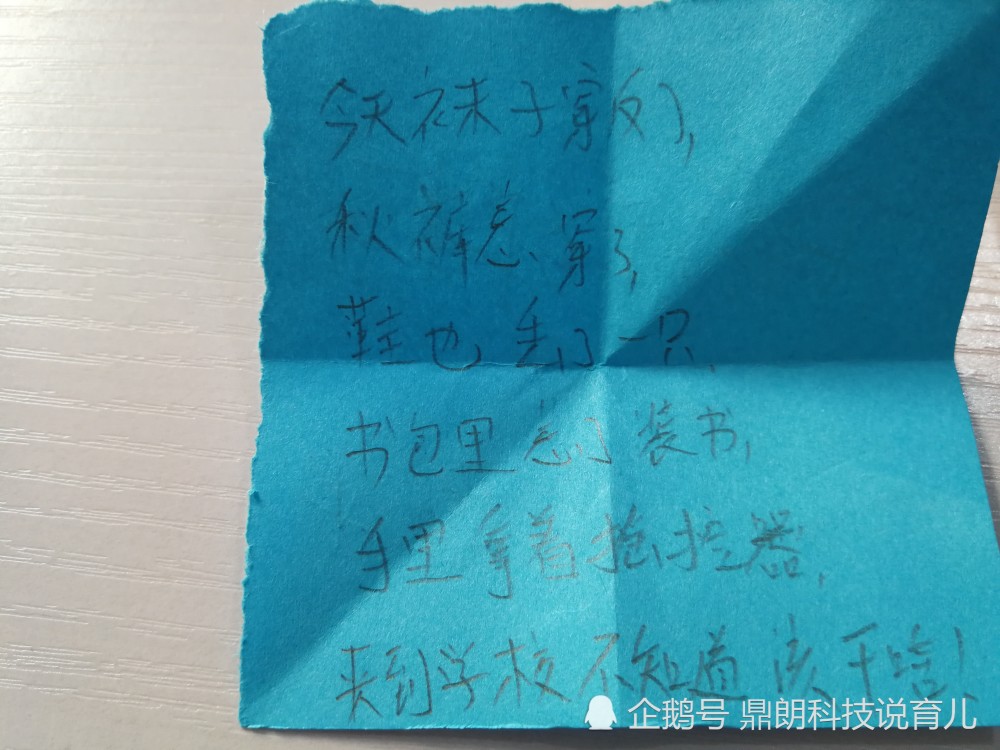 今天袜子穿反了,
秋裤忘穿了,
鞋也丢了一只,
书包里忘了装书,
手里拿着摇控器,
来到学校不知道该干啥!
企鹅号 鼎朗科技说育儿